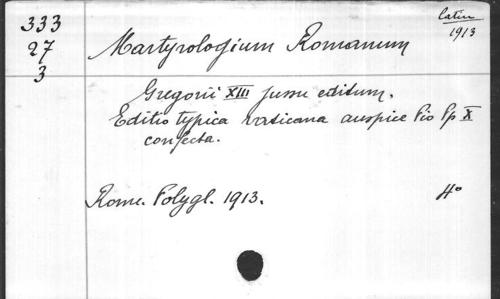 333
27
3
latin
1913
Martyrologium Romanum
Gregorii XIII jussu editum.
Editio typica vaticana auspice Pio Pp X
confecta.
Rome. Polygl. 1913. 4°